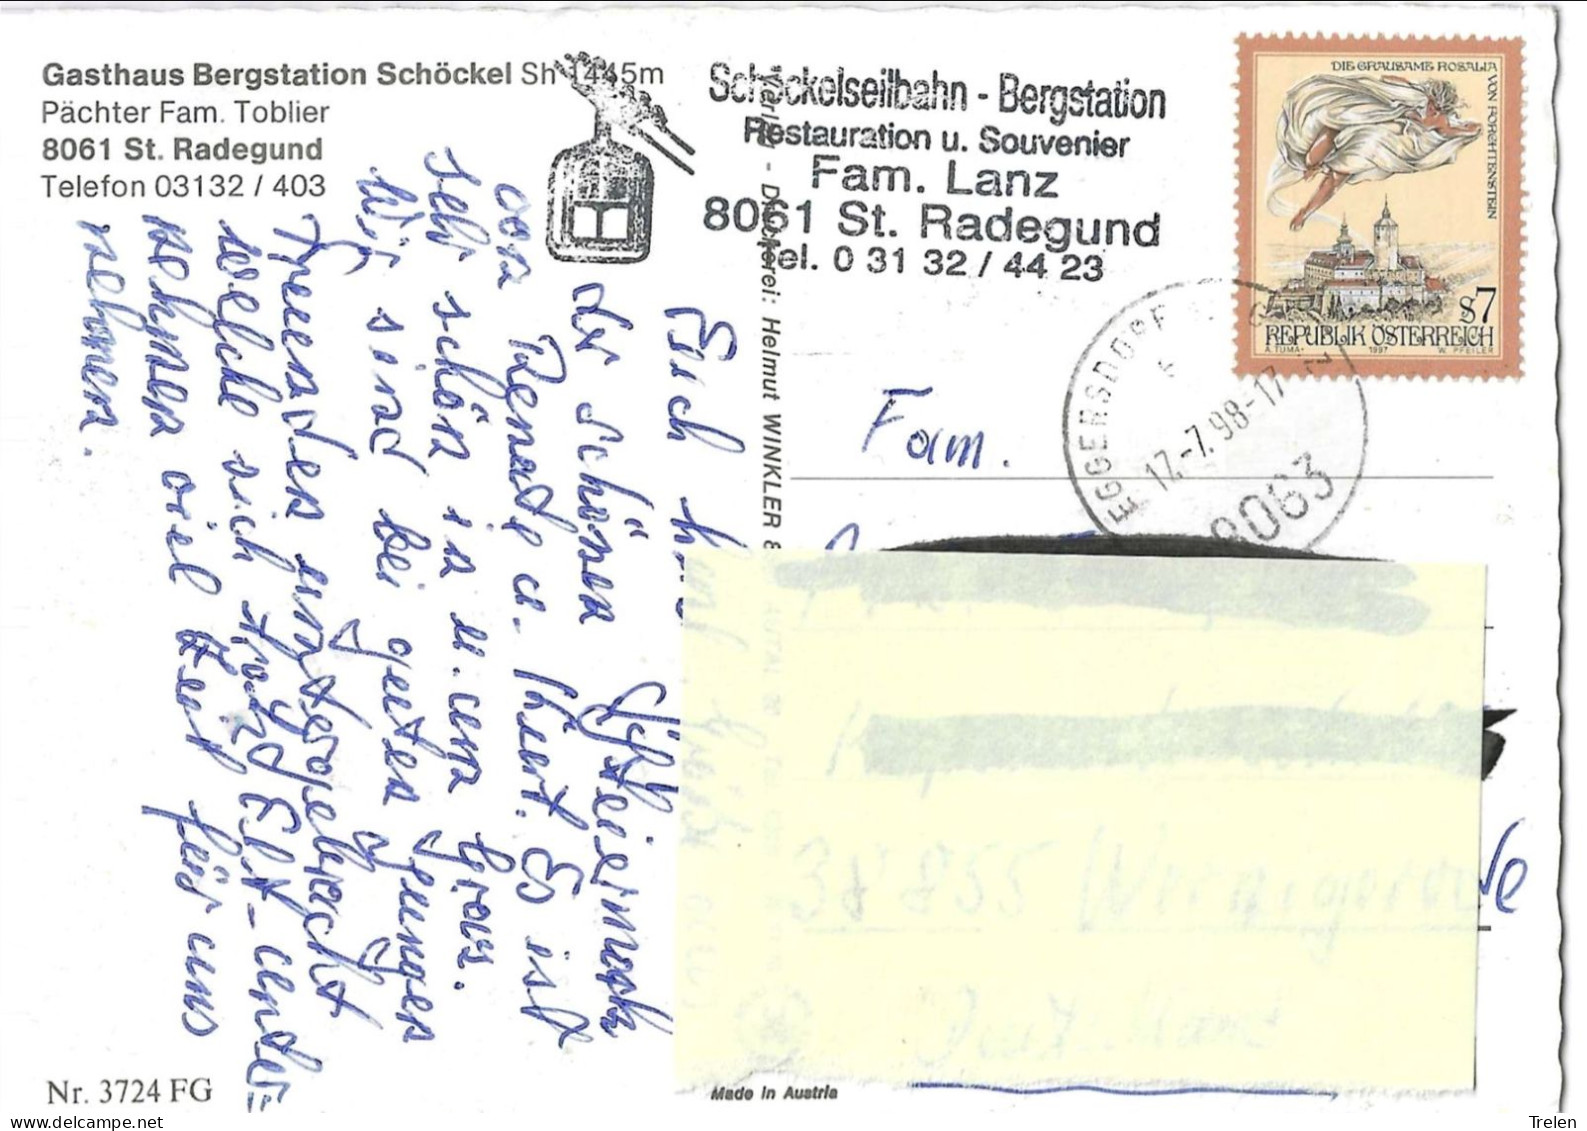 Gasthaus Bergstation Schöckel Sh 1445m
Pächter Fam. Toblier
8061 St. Radegund
Telefon 03132 / 403
Schöckelseilbahn - Bergstation
Restauration u. Souvenier
Fam. Lanz
8061 St. Radegund
Tel. 0 31 32 / 44 23
DIE GRAUSAME ROSALIA
VON FORCHTENSTEIN
S7
REPUBLIK ÖSTERREICH
A. TUMA 1997 W. PFEILER
EGGERSDORF
17.-7.98-17
8063
Euch
der schönen Steiermark
von Renate u. Kurt. Es ist
sehr schön in u. um Graz.
Wir sind bei guten jungen
Freunden untergebracht
welche sich trotz
nehmen viel Zeit für uns
nehmen.
Druckerei: Helmut WINKLER
Fam.
Made in Austria
Nr. 3724 FG
Trelen